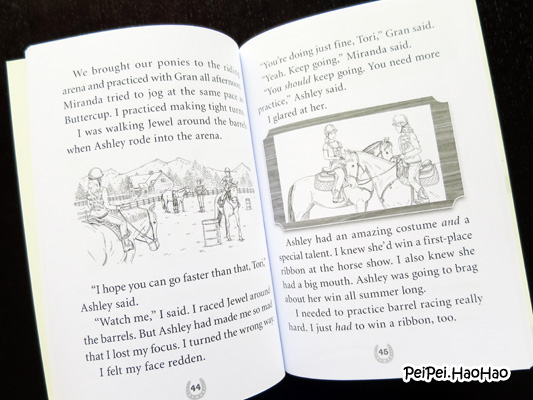 We brought our ponies to the riding
arena and practiced with Gran all afternoon.
Miranda tried to jog at the same pace as
Buttercup. I practiced making tight turns.
I was walking Jewel around the barrels
when Ashley rode into the arena.
"I hope you can go faster than that, Tori,"
Ashley said.
"Watch me," I said. I raced Jewel around
the barrels. But Ashley had made me so mad
that I lost my focus. I turned the wrong way.
I felt my face redden.
44
"You're doing just fine, Tori," Gran said.
"Yeah. Keep going," Miranda said.
"You should keep going. You need more
practice," Ashley said.
I glared at her.
Ashley had an amazing costume and a
special talent. I knew she'd win a first-place
ribbon at the horse show. I also knew she
had a big mouth. Ashley was going to brag
about her win all summer long.
I needed to practice barrel racing really
hard. I just had to win a ribbon, too.
45
PeiPei.HaoHao